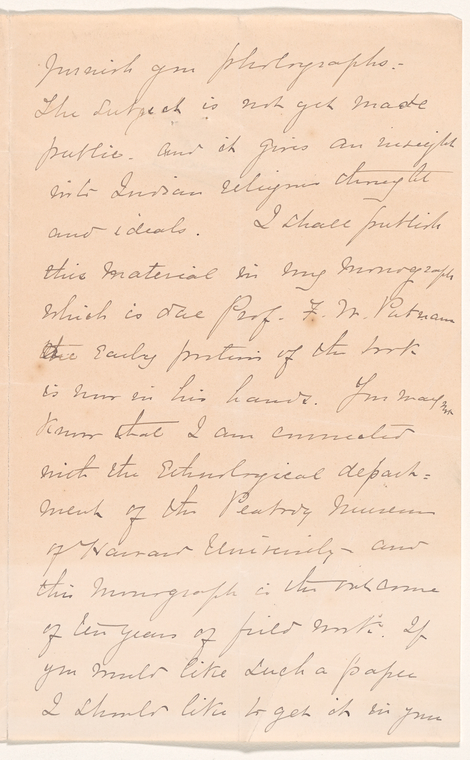 furnish you photographs.-
The subject is not yet made
public. and it gives an insight
into Indian religious thought
and ideals. I shall publish
this material in my monograph
which is due Prof. F. W. Putnam
the Early portion of the book
is now in his hands. You may not
know that I am connected
with the Ethnological depart=
ment of the Peabody Museum
of Harvard University - and
this monograph is the outcome
of ten years of field work. If
you would like such a paper
I should like to get it in your